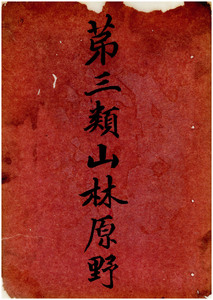 第三類山林原野